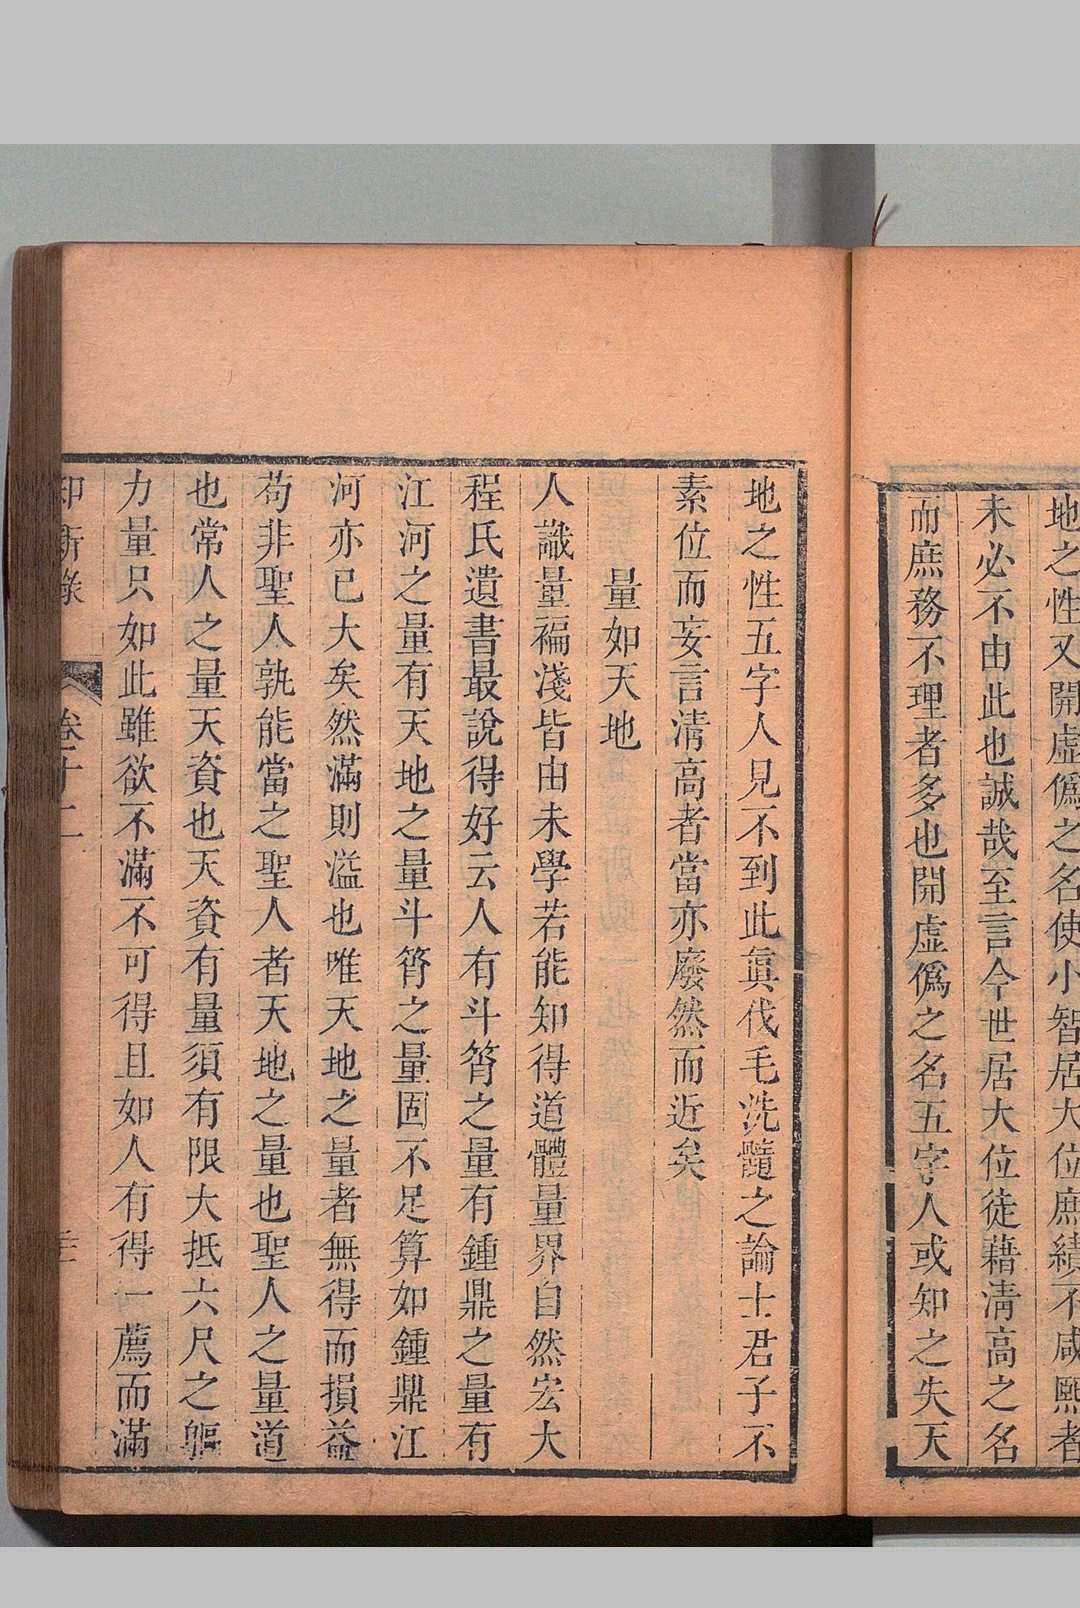 地之性又開虛僞之名使小智居大位庶績不咸熙者
未必不由此也誠哉至言今世居大位徒藉淸高之名
而庶務不理者多也開虛僞之名五字人或知之失天
地之性五字人見不到此眞伐毛洗髓之論士君子不
素位而妄言淸高者當亦廢然而近矣
量如天地
人識量褊淺皆由未學若能知得道體量界自然宏大
程氏遺書最說得好云人有斗筲之量有鍾鼎之量有
江河之量有天地之量斗筲之量固不足算如鍾鼎江
河亦已大矣然滿則溢也唯天地之量者無得而損益
苟非聖人孰能當之聖人者天地之量也聖人之量道
也常人之量天資也天資有量須有限大抵六尺之軀
力量只如此雖欲不滿不可得且如人有得一薦而滿
知新錄 卷二十二